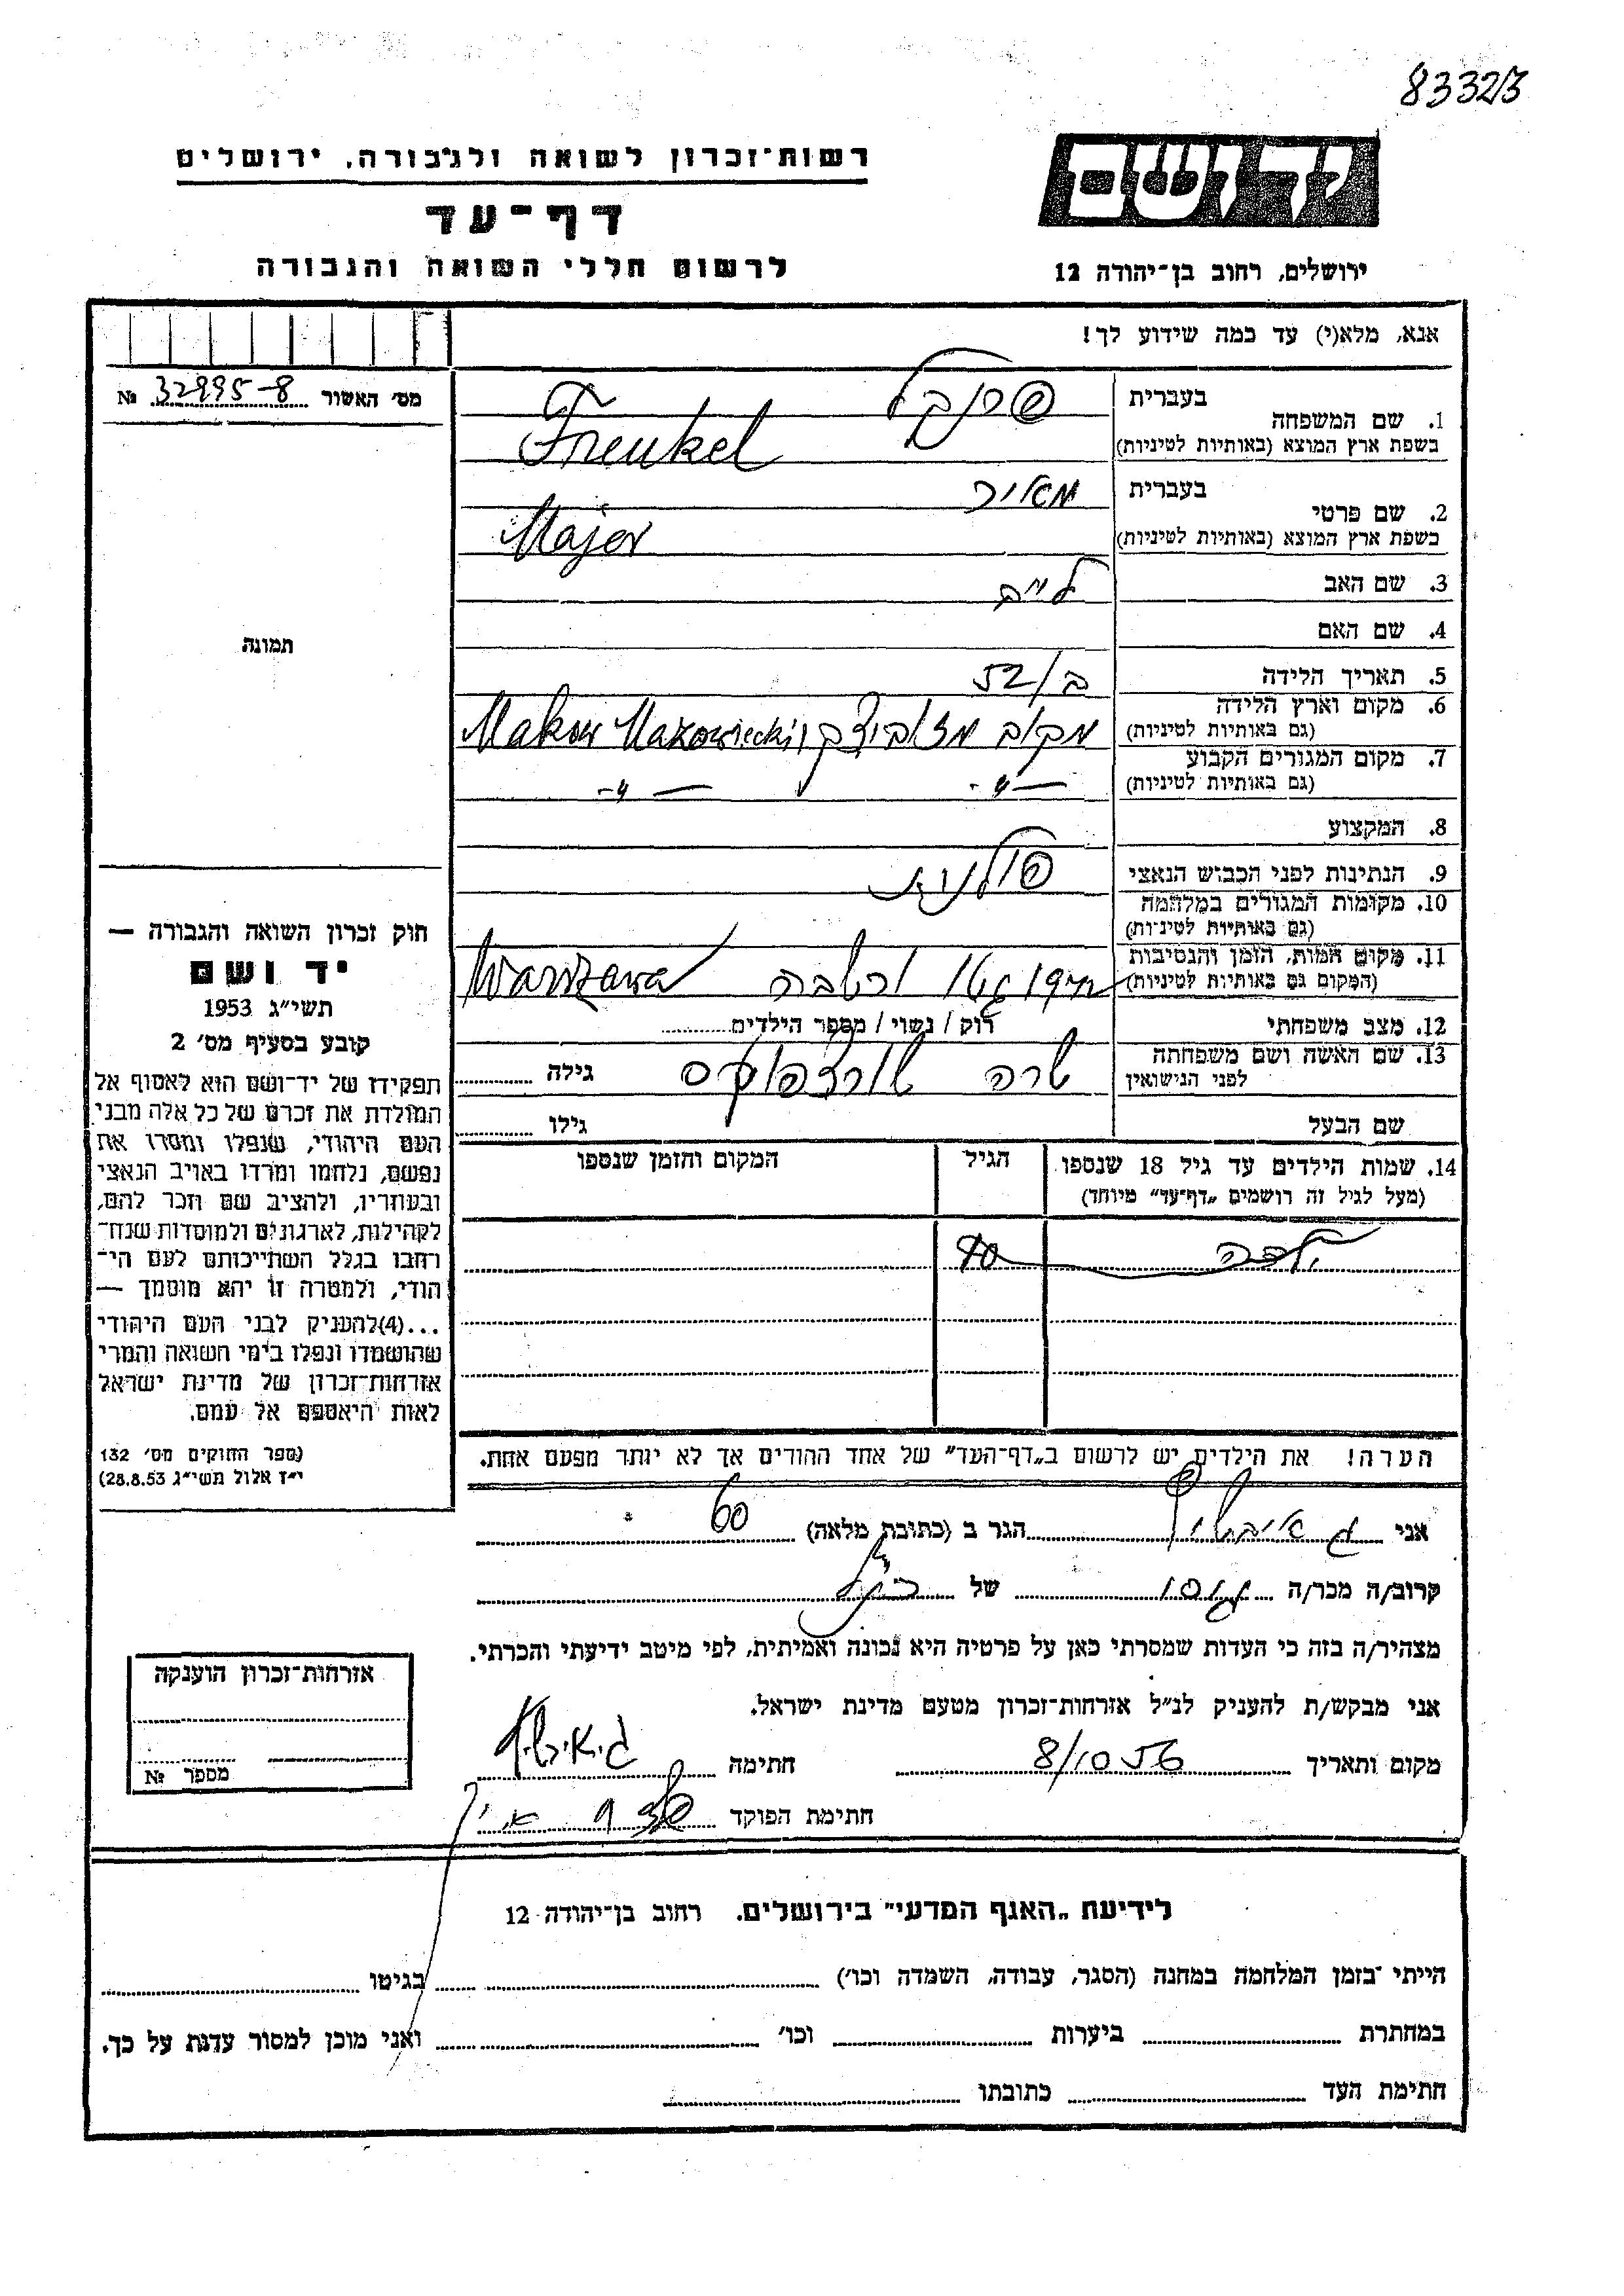 83323
יד ושם
רשות־זכרון לשואה ולגבורה, ירושלים
דף־עד
לרשום חללי השואה והגבורה
ירושלים, רחוב בן־יהודה 12
אנא, מלא(י) עד כמה שידוע לך!
מס׳ האשור 32995-8 №
1. שם המשפחה
בעברית פרנקל
בשפת ארץ המוצא (באותיות לטיניות) Frenkel
2. שם פרטי
בעברית מאיר
בשפת ארץ המוצא (באותיות לטיניות) Major
3. שם האב
4. שם האם
5. תאריך הלידה 52
6. מקום וארץ הלידה
(גם באותיות לטיניות) Makow Mazowiecki
7. מקום המגורים הקבוע
(גם באותיות לטיניות) — 〃 - — 〃 -
8. המקצוע
9. הנתינות לפני הכבוש הנאצי פולנית
10. מקומות המגורים במלחמה
(גם באותיות לטיניות)
11. מקום המות, הזמן והנסיבות
(המקום גם באותיות לטיניות) גטו ורשבה Warszawa
12. מצב משפחתי רוק / נשוי / מספר הילדים
13. שם האשה ושם משפחתה
לפני הנישואין שרה גילה
שם הבעל גילו
14. שמות הילדים עד גיל 18 שנספו הגיל המקום והזמן שנספו
(מעל לגיל זה רושמים „דף־עד״ מיוחד)
הערה! את הילדים יש לרשום ב„דף־העד״ של אחד ההורים אך לא יותר מפעם אחת.
אני הגר ב (כתובת מלאה)
קרוב/ה מכר/ה של
מצהיר/ה בזה כי העדות שמסרתי כאן על פרטיה היא נכונה ואמיתית, לפי מיטב ידיעתי והכרתי.
אני מבקש/ת להעניק לנ״ל אזרחות־זכרון מטעם מדינת ישראל.
מקום ותאריך 8/10 56 חתימה
חתימת הפוקד
תמונה
חוק זכרון השואה והגבורה —
יד ושם
תשי״ג 1953
קובע בסעיף מס׳ 2
תפקידו של יד־ושם הוא לאסוף אל
המולדת את זכרם של כל אלה מבני
העם היהודי, שנפלו ומסרו את
נפשם, נלחמו ומרדו באויב הנאצי
ובעוזריו, ולהציב שם וזכר להם,
לקהילות, לארגונים ולמוסדות שנח־
רבו בגלל השתייכותם לעם הי־
הודי, ולמטרה זו יהא מוסמך —
...(4)להעניק לבני העם היהודי
שהושמדו ונפלו בימי השואה והמרי
אזרחות־זכרון של מדינת ישראל
לאות היאספם אל עמם.
(ספר החוקים מס׳ 132
י״ז אלול תשי״ג 28.8.53)
אזרחות־זכרון הוענקה
מספר №
לידיעת „האגף המדעי״ בירושלים. רחוב בן־יהודה 12
הייתי בזמן המלחמה במחנה (הסגר, עבודה, השמדה וכו׳) בגיטו
במחתרת ביערות וכו׳ ואני מוכן למסור עדות על כך.
חתימת העד כתובתו